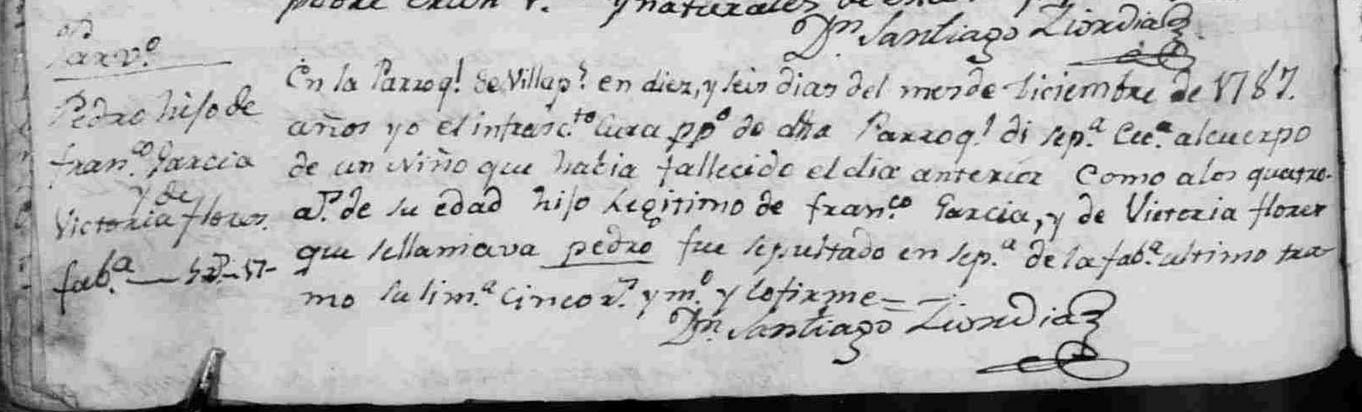 pobre y naturales de
Dn. Santiago Ziordia
Parv.o
Pedro hijo de
fran.co Garcia
y de
Victoria flores.
fab.a
En la Parroq.l de Villap.n en diez, y seis dias del mes de Diciembre de 1787.
años yo el infrasc.to Cura pp.o de dha Parroq.l di sep.a Ecc.a al cuerpo
de un Niño que habia fallecido el dia anterior Como a los quatro
a.s de su edad hijo Legitimo de fran.co Garcia, y de Victoria flores
que sellamava pedro fue sepultado en sep.a de la fab.a ultimo tra-
mo su lim.a Cinco r.s y m.o y lo firme =
Dn. Santiago Ziordia